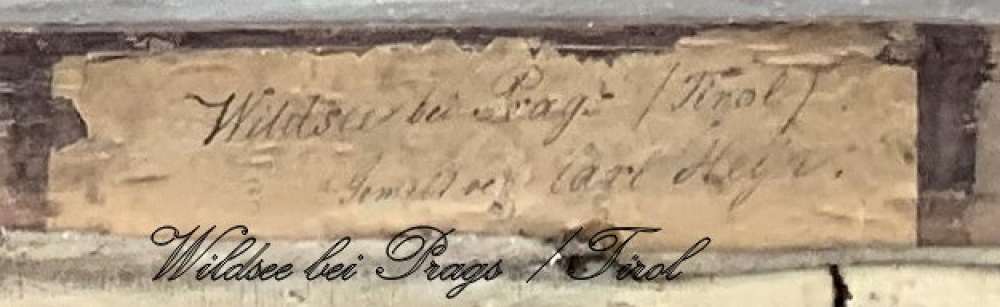 Wildsee bei Prags (Tirol).
Gemalt von Carl Heyn.
Wildsee bei Prags / Tirol